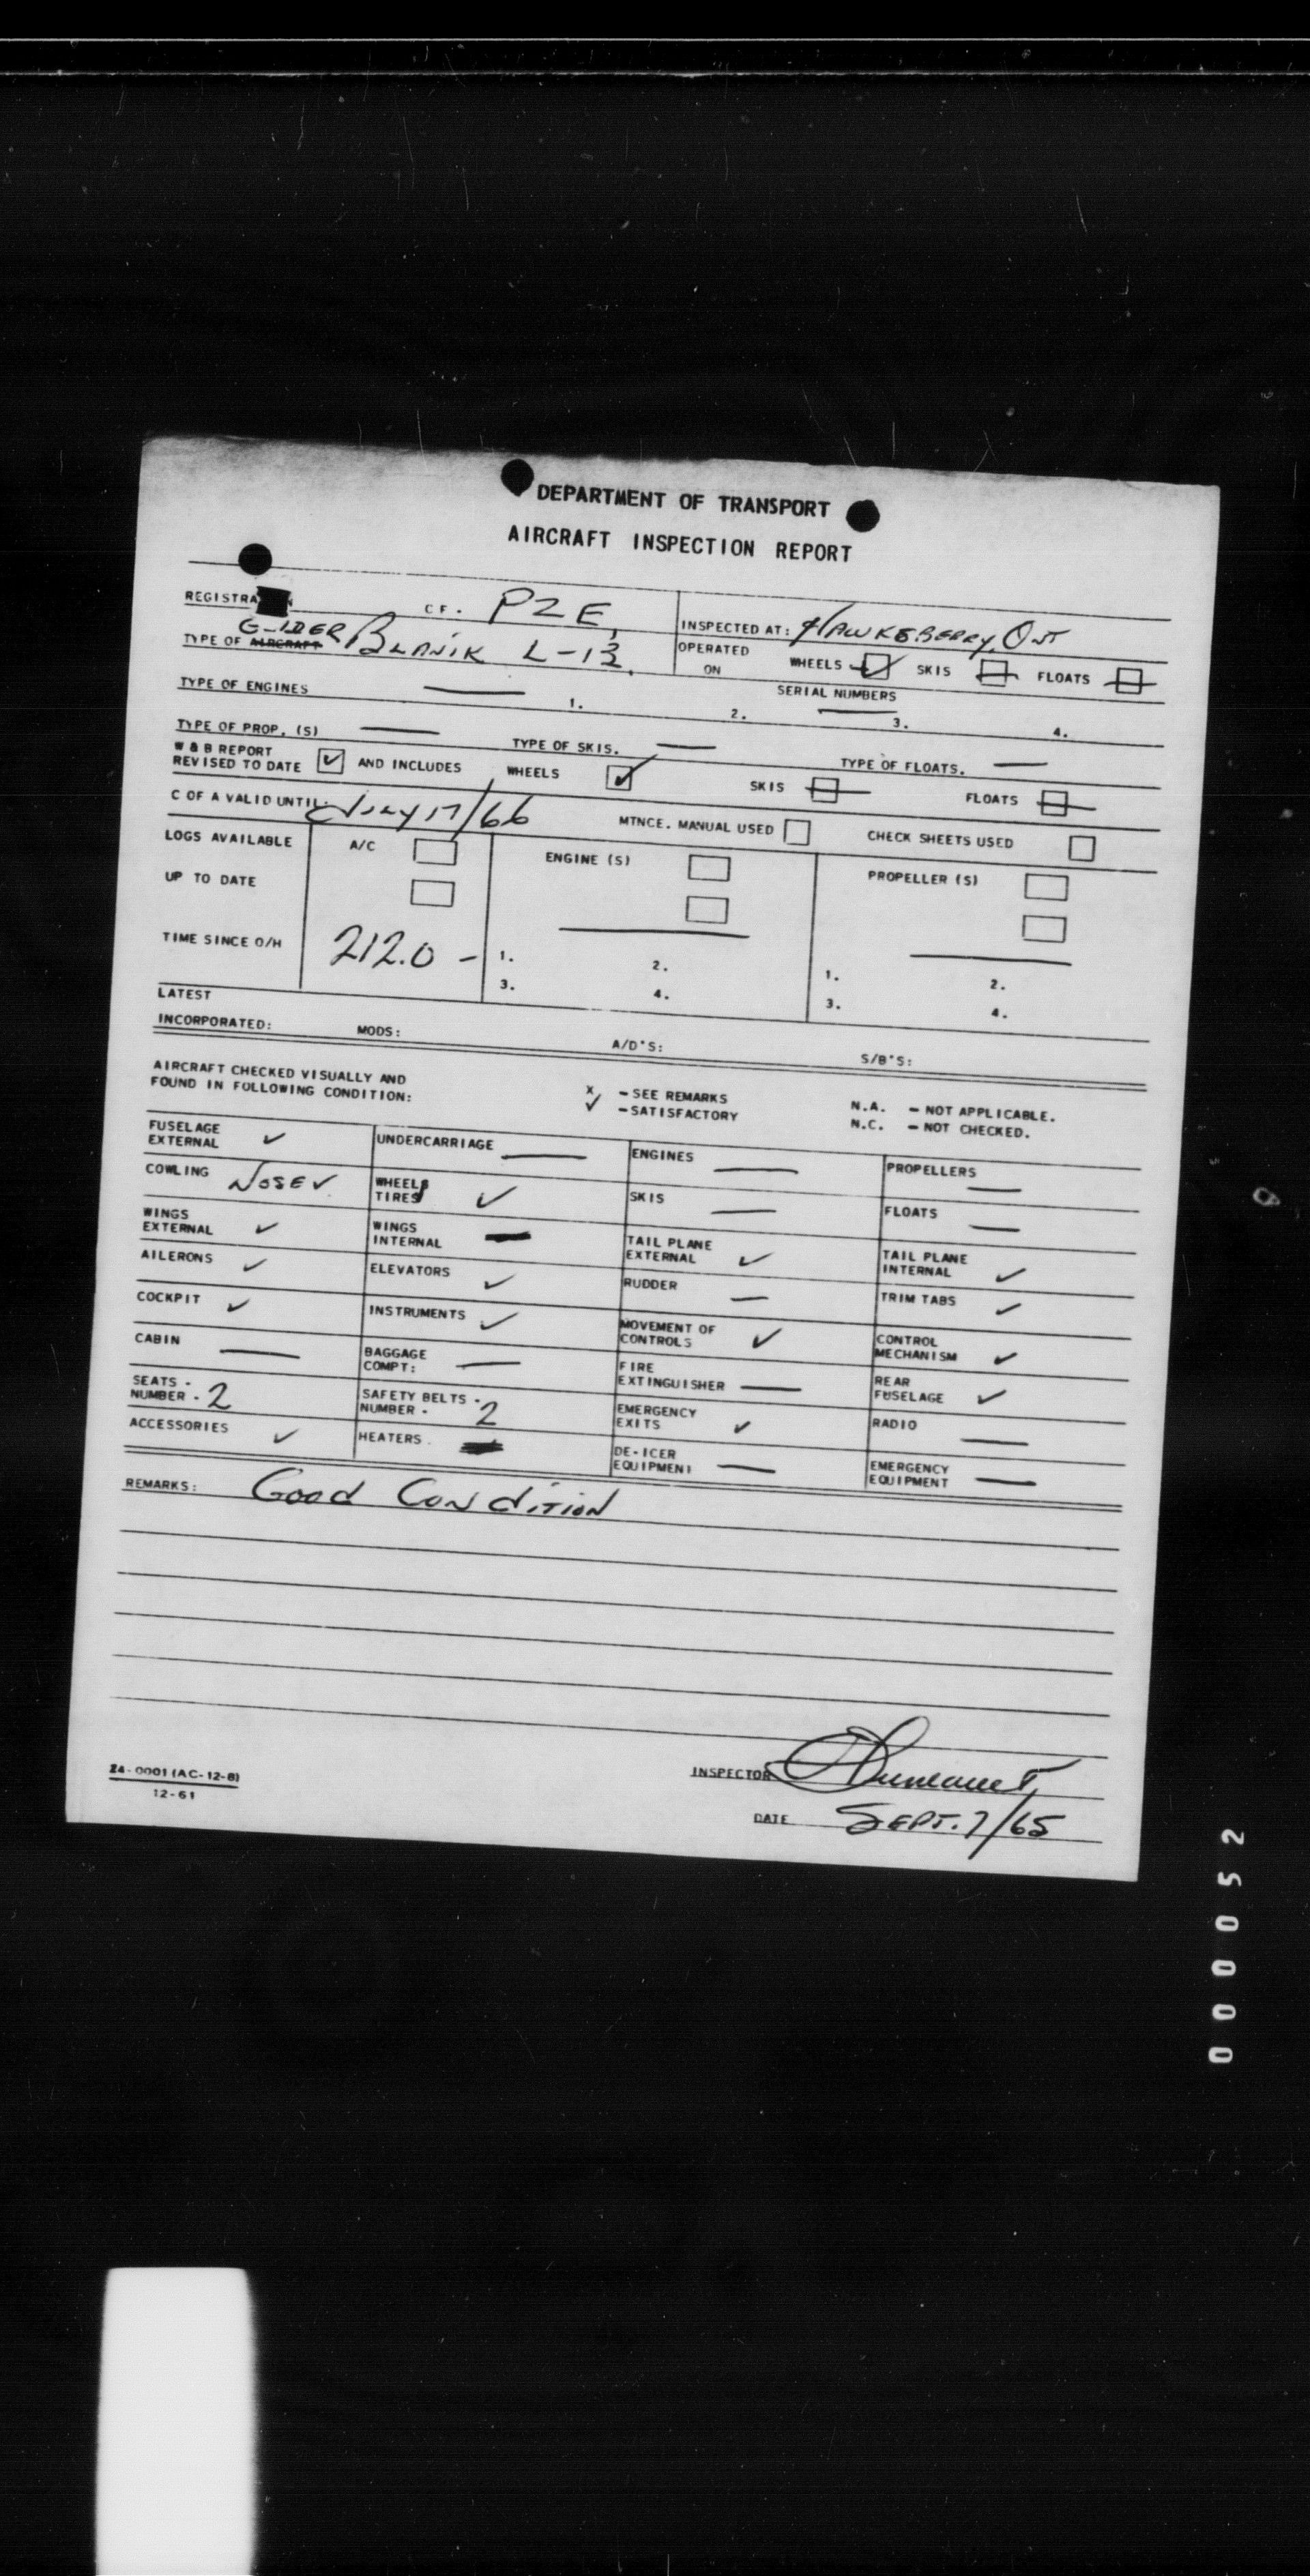 DEPARTMENT OF TRANSPORT
AIRCRAFT INSPECTION REPORT
REGISTRA CF. PZE, INSPECTED AT: HAWKEBERRY, ONT
TYPE OF AIRCRAFT GLIDER BLANIK L-13. OPERATED ON WHEELS ✓ SKIS FLOATS
TYPE OF ENGINES — 1. SERIAL NUMBERS 2. — 3. 4.
TYPE OF PROP. (S) — TYPE OF SKIS. — TYPE OF FLOATS. —
W & B REPORT
REVISED TO DATE ✓ AND INCLUDES WHEELS ✓ SKIS FLOATS
C OF A VALID UNTIL: JULY 17/66 MTNCE. MANUAL USED CHECK SHEETS USED
LOGS AVAILABLE A/C ENGINE (S) PROPELLER (S)
UP TO DATE
TIME SINCE O/H 212.0 - 1. 2. 1. 2.
3. 4. 3. 4.
LATEST
INCORPORATED: MODS: A/D'S: S/B'S:
AIRCRAFT CHECKED VISUALLY AND
FOUND IN FOLLOWING CONDITION:
X - SEE REMARKS N.A. - NOT APPLICABLE.
✓ - SATISFACTORY N.C. - NOT CHECKED.
FUSELAGE EXTERNAL ✓ UNDERCARRIAGE — ENGINES — PROPELLERS —
COWLING NOSE ✓ WHEELS TIRES ✓ SKIS — FLOATS —
WINGS EXTERNAL ✓ WINGS INTERNAL — TAIL PLANE EXTERNAL ✓ TAIL PLANE INTERNAL ✓
AILERONS ✓ ELEVATORS ✓ RUDDER — TRIM TABS ✓
COCKPIT ✓ INSTRUMENTS ✓ MOVEMENT OF CONTROLS ✓ CONTROL MECHANISM ✓
CABIN — BAGGAGE COMPT: — FIRE EXTINGUISHER — REAR FUSELAGE ✓
SEATS - NUMBER - 2 SAFETY BELTS - NUMBER - 2 EMERGENCY EXITS ✓ RADIO —
ACCESSORIES ✓ HEATERS. — DE-ICER EQUIPMENT — EMERGENCY EQUIPMENT —
REMARKS: GOOD CONDITION
24-0001 (AC-12-8)
12-61
INSPECTOR
DATE SEPT. 7/65
000052